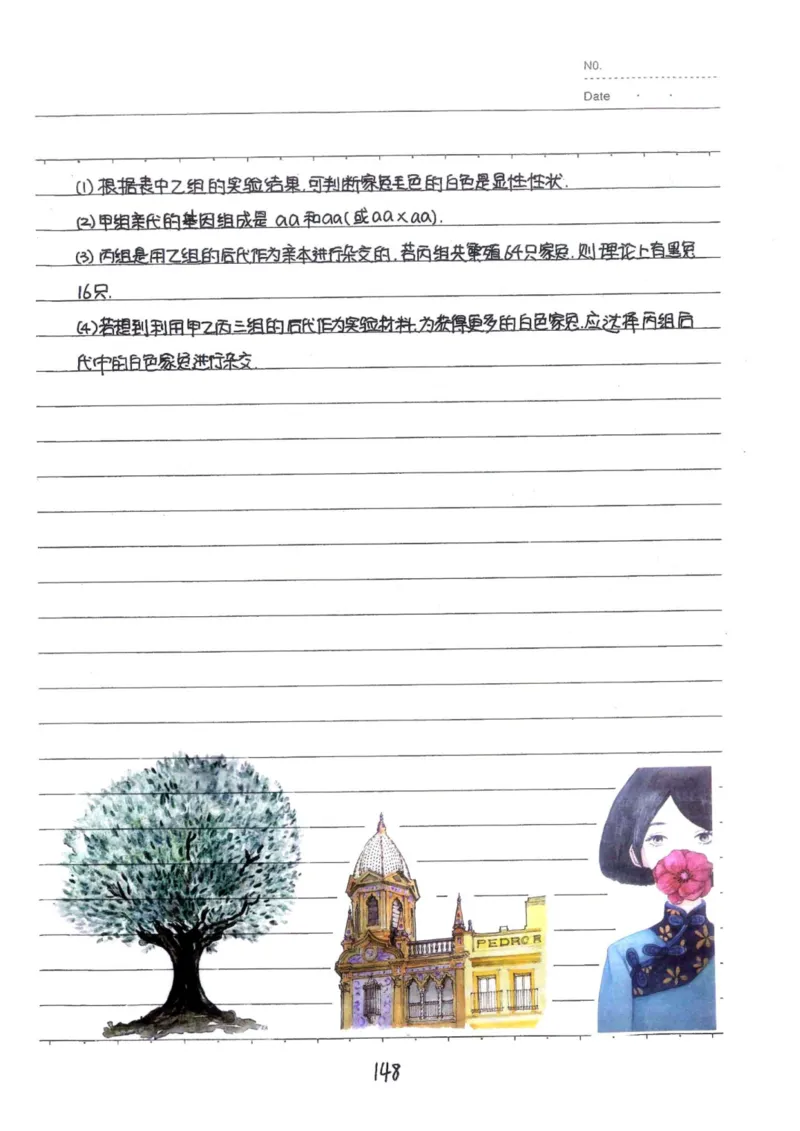 NO.
Date
(1)根据表中乙组的实验结果,可判断家兔毛色的白色是显性性状.
(2)甲组亲代的基因组成是 aa和aa(或aa×aa).
(3)丙组是用乙组的后代作为亲本进行杂交的,若丙组共繁殖64只家兔,则理论上有黑兔
16只.
(4)若想到利用甲乙丙三组的后代作为实验材料,为获得更多的白色家兔,应选择丙组后
代中的白色家兔进行杂交.
PEDRO R
148